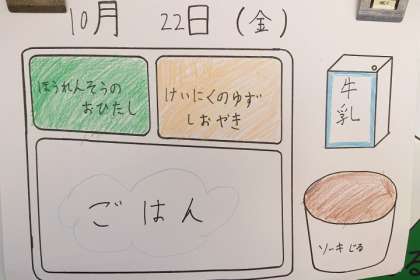 10月 22日 (金)
ほうれんそうの
おひたし
けいにくのゆず
しおやき
牛乳
ごはん
ソーキじる